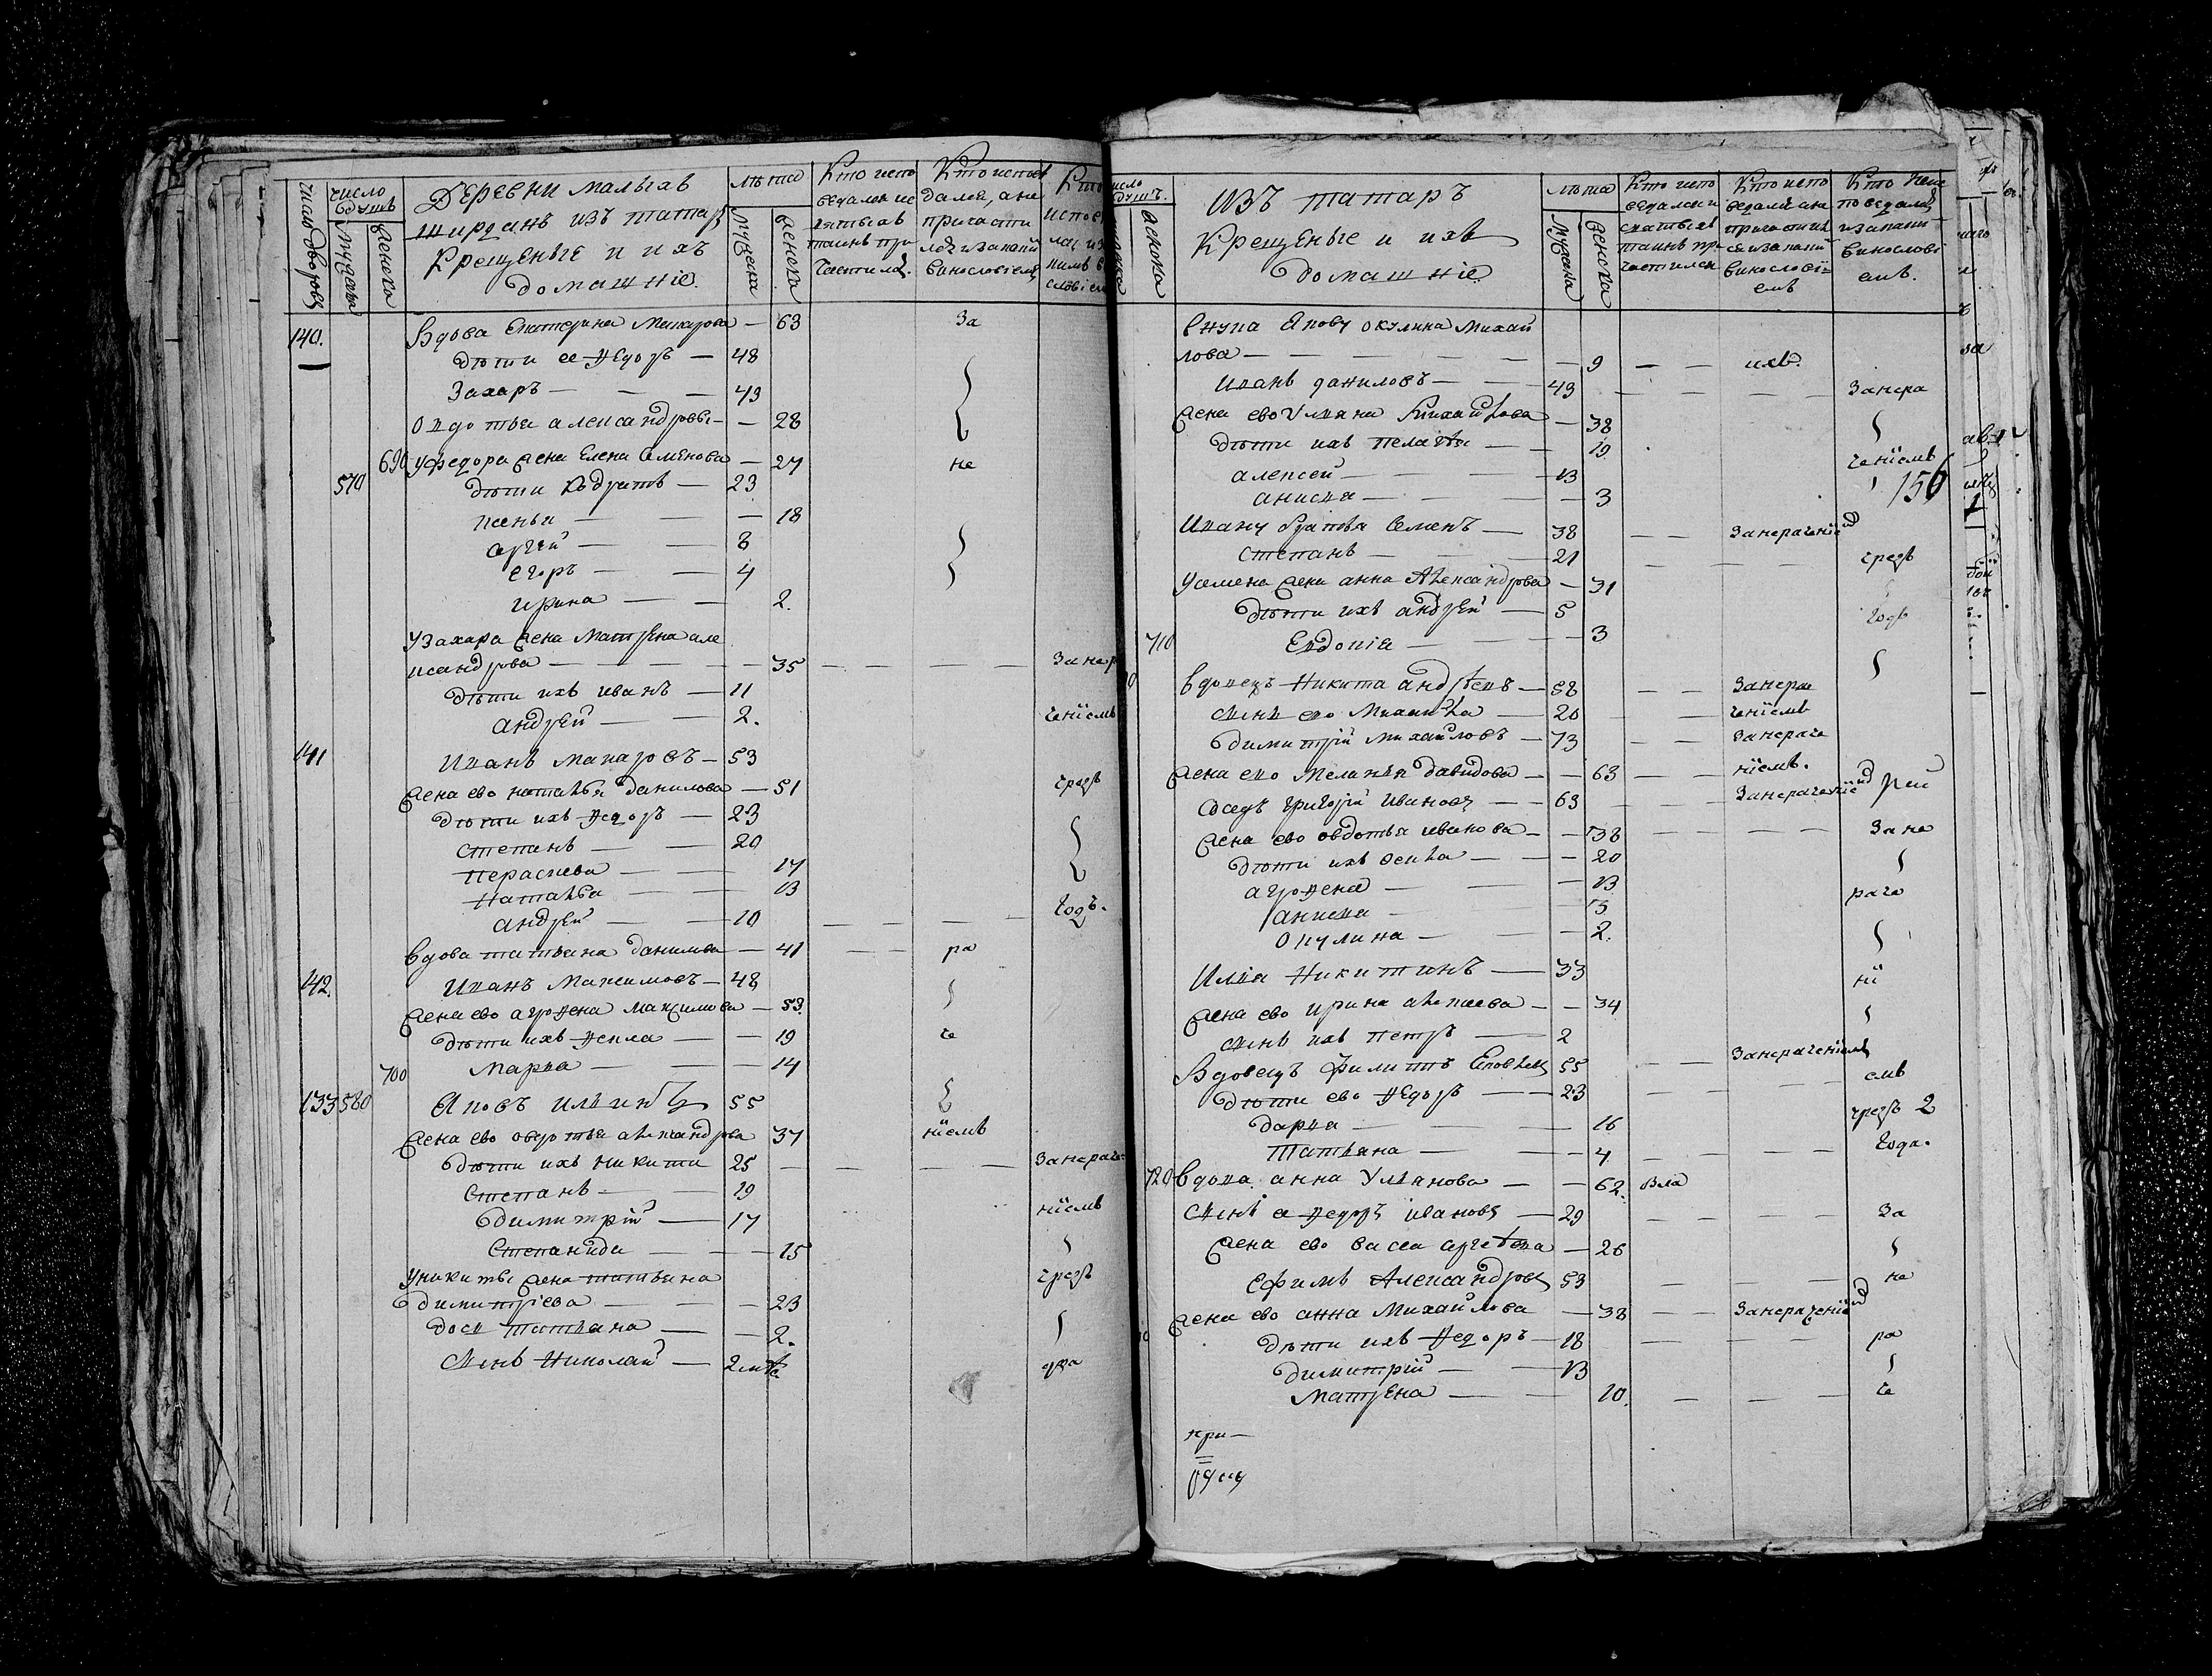 число дворовъ
число душъ
мужеска
женска
Деревни малыхъ
ширданъ изъ татаръ
Крещеные и ихъ
домашніе.
лѣта
мужеска
женска
Кто испо
ведался и с
вятыхъ
таинъ при
частился.
Кто испове
дался, а не
причасти
лся и за какимъ
винословіемъ
140. Вдова Екатерина Макарова — 63 За
дѣти ее Федоръ — 48
Захаръ — — — 43
Овдотья александрова — — 28
690 у федора жена Елена Семенова — 27 не
570 дѣти Кодратъ — 23
— — 18
сергей — — 8
егоръ — — 4
ирина — — 2.
у захара жена Матрена але
ксандрова — — — — — 35 — — — — Занер
дѣти ихъ иванъ — 11
андрей — — 2. ченіемъ
141 Иванъ макаровъ — 53
жена ево наталья данилова — 51 чрезъ
дѣти ихъ Федоръ — 23
степанъ — — 20
Параскева — — 17
Наталья — — 13
андрей — — 10 — — — годъ.
Вдова татьяна данилова — 41 — — ра
142. Иванъ Максимовъ — 48
жена ево агрофена максимова — 53.
дѣти ихъ Фекла — — 19 че
700 марва — — — 14
133 580 Яковъ ильинъ 55
жена ево овдотья александрова 37 ніемъ
дѣти ихъ никита 25 — — — — Занераче-
Степанъ — — 19
Димитрій — 17 ніемъ
Степанида — — — 15
У никиты жена татьяна чрезъ
димитріева — — — 23
дочь татьяна — — 2.
Сынъ Николай — 2 два
изъ татаръ
Крещеные и ихъ
домашніе.
лѣта
мужеска
женска
Кто испо
ведался и
святыхъ
таинъ при-
частился
Кто испо
ведался а не
причастил
ся и за какимъ
винословіи-
емъ
Кто не ис
поведался
и за какимъ
винослові
емъ.
Внука Якову окулина михай
лова — — — — — 9 — — ихъ.
Иванъ даниловъ — — 43 — — — — Занера
жена ево Ульяна Михайлова — 38
дѣти ихъ пелагея — — 19 ченіемъ
алексей — — 13 156
анисья — — — 3
Ивану братья Семенъ — 38 — — Занераченіемъ
степанъ — — — 21 — — — — чрезъ
У семена жена анна Александрова — 31
дѣти ихъ андрей — 5 годъ
710 Евдокія — — — 3
вдовецъ Никита андреевъ — 58 — — Занера
сынъ ево Михайла — 20 — — ченіемъ
димитрій михайловъ — 73 — — Занераче
жена ево Меланья давидова — — 63 — — ніемъ.
григорій Ивановъ — — 63 — — Занераченіемъ
жена ево овдотья иванова — — 38 — — — — Зане
дѣти ихъ — — — 20
агрофена — — — 13 раче
анисья — — 5
окулина — — 2.
Илья Никитинъ — 33 ні
жена ево ирина алексеева — — 34
сынъ ихъ петръ — 2
Вдовецъ Филиппъ Яковлевъ 55 — — Занераченіемъ
дѣти ево Федоръ — — 23 — — — — емъ
дарья — — — 16 чрезъ 2
Татьяна — — — 4 — — — — года.
720 вдова анна Ульянова — — 62.
Сынъ ея Федоръ ивановъ — 29 — — — — За
жена ево васса сергеева — 26
ефимъ Александровъ 53 — — — — не
жена ево анна Михайлова — 38 — — Занераченіемъ
дѣти ихъ Федоръ — 18 — — — ра
димитрій — — 13
Матрена — — 10. — — — че